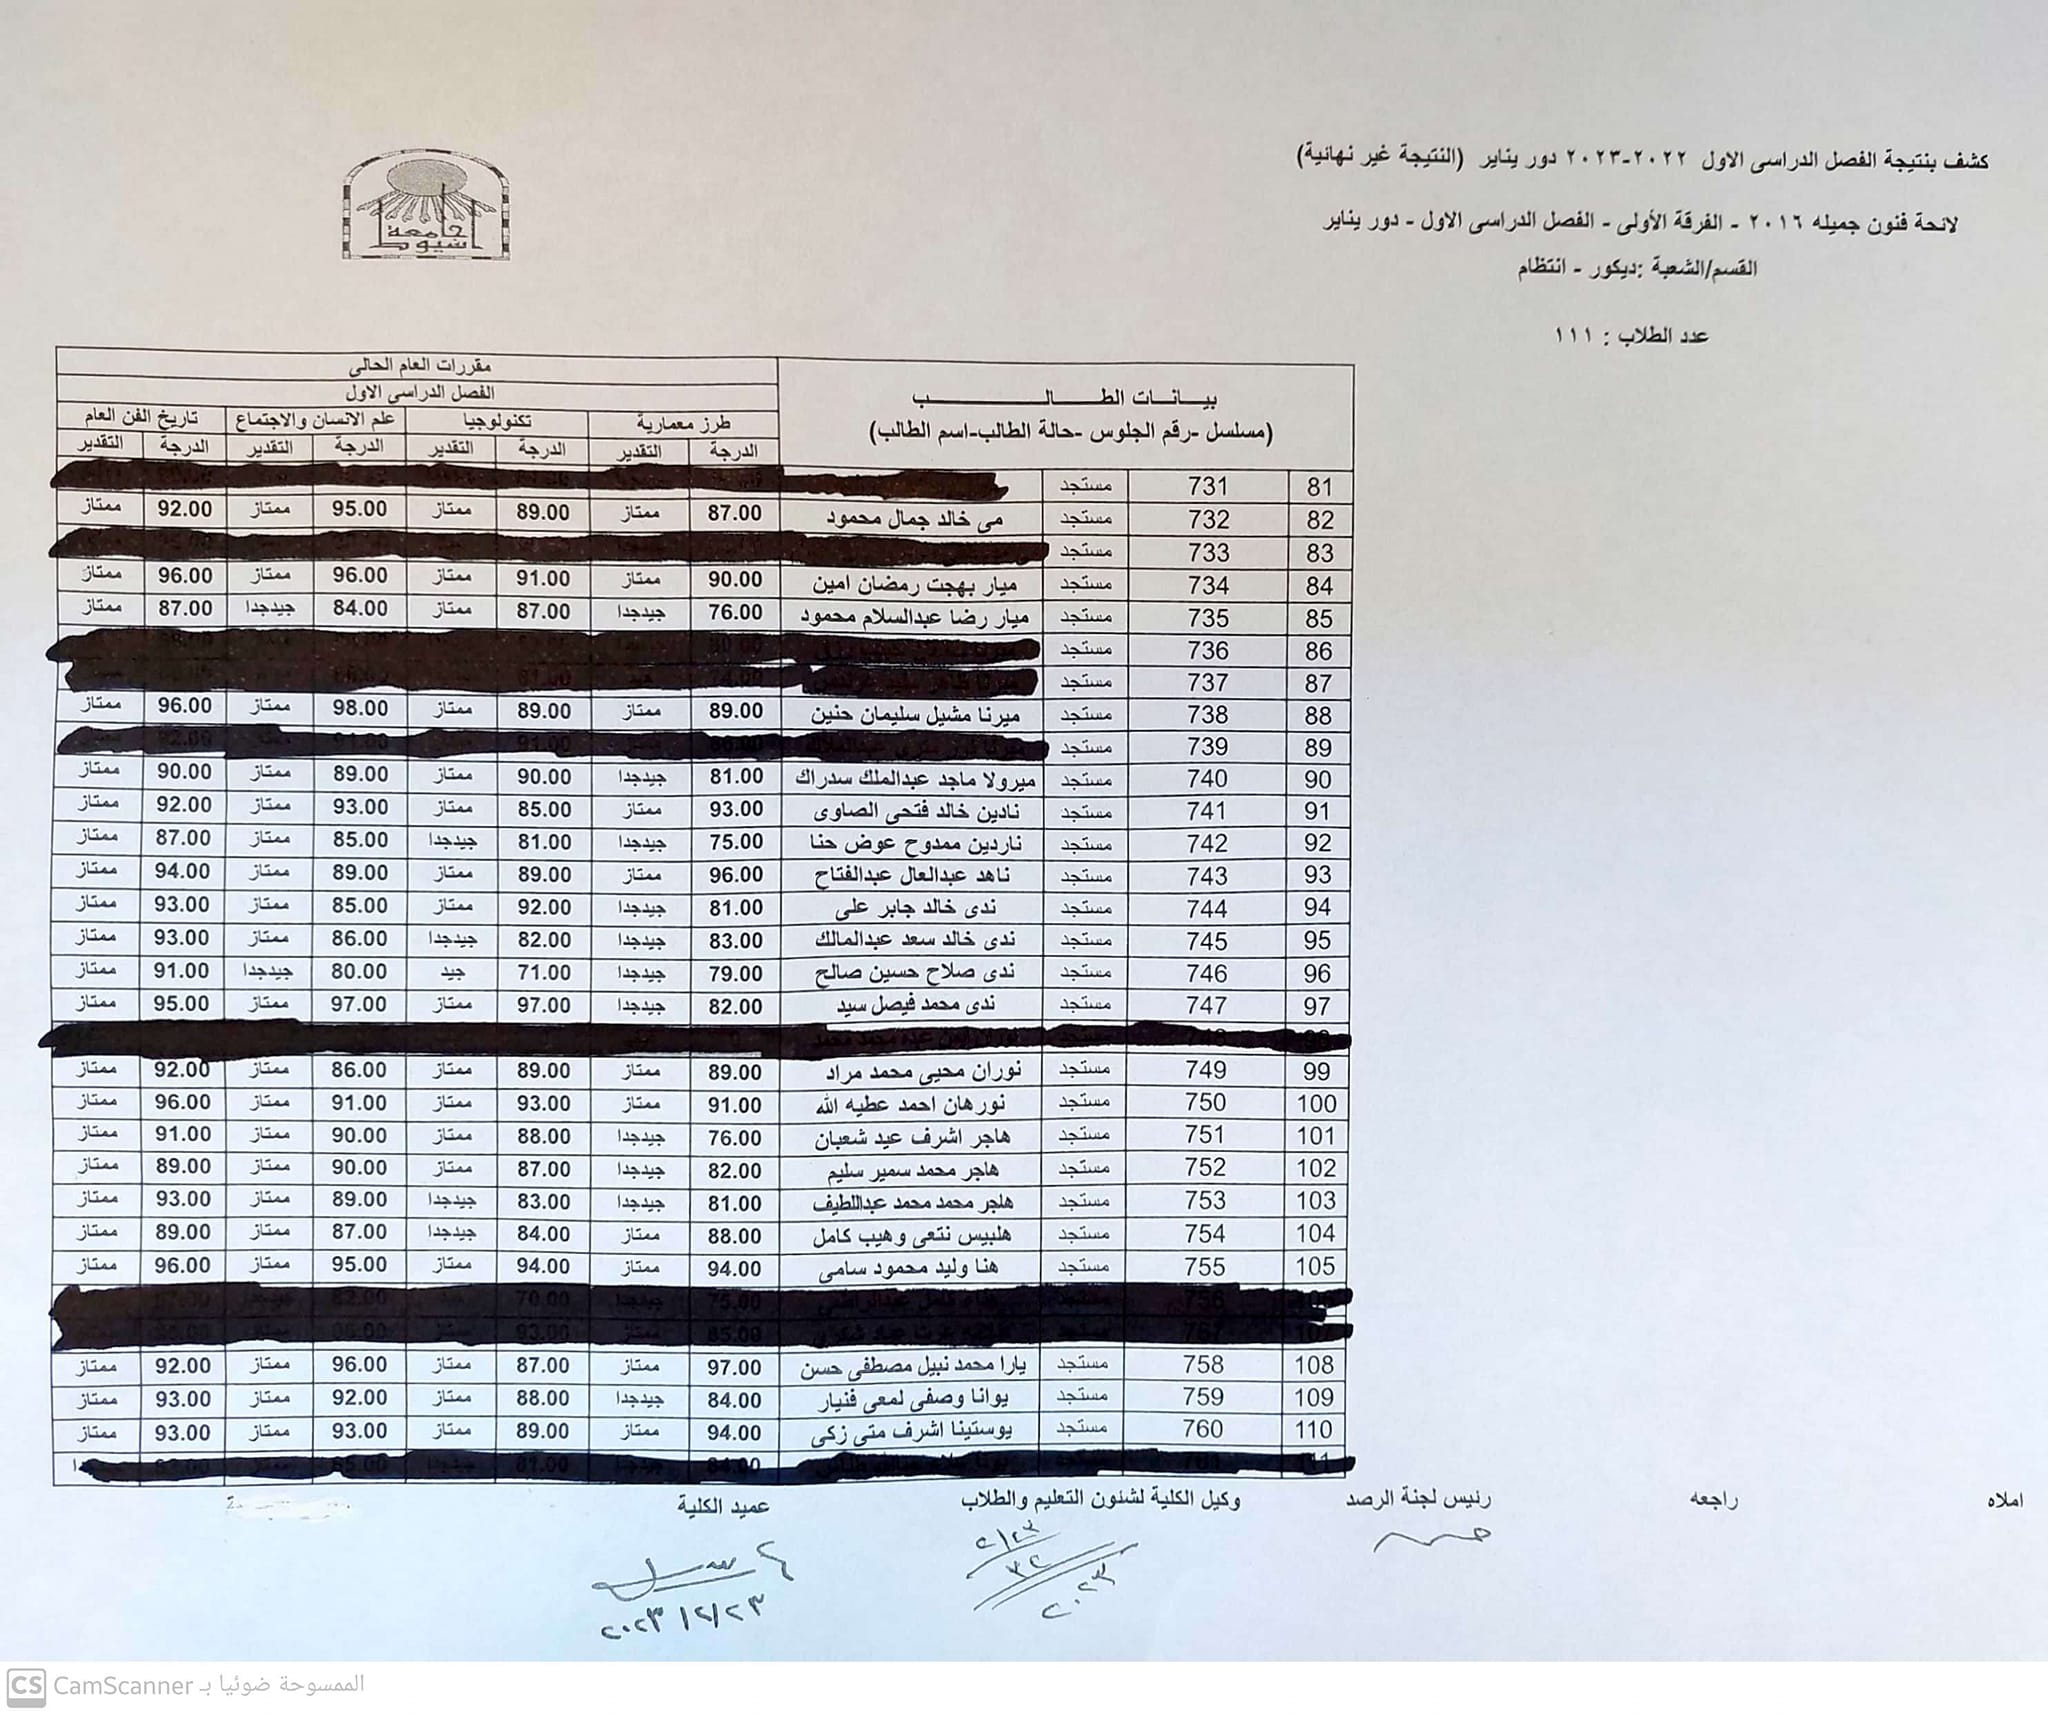 كشف بنتيجة الفصل الدراسى الاول ٢٠٢٢-٢٠٢٣ دور يناير (النتيجة غير نهائية)
لائحة فنون جميله ٢٠١٦ - الفرقة الأولى - الفصل الدراسى الاول - دور يناير
القسم/الشعبة :ديكور - انتظام
عدد الطلاب : ١١١
جامعة اسيوط
بيـــانـــات الطــــالـــــــب
(مسلسل -رقم الجلوس -حالة الطالب-اسم الطالب)
مقررات العام الحالى
الفصل الدراسى الاول
طرز معمارية تكنولوجيا علم الانسان والاجتماع تاريخ الفن العام
الدرجة التقدير الدرجة التقدير الدرجة التقدير الدرجة التقدير
81 731 مستجد
82 732 مستجد مى خالد جمال محمود 87.00 ممتاز 89.00 ممتاز 95.00 ممتاز 92.00 ممتاز
83 733 مستجد
84 734 مستجد ميار بهجت رمضان امين 90.00 ممتاز 91.00 ممتاز 96.00 ممتاز 96.00 ممتاز
85 735 مستجد ميار رضا عبدالسلام محمود 76.00 جيدجدا 87.00 ممتاز 84.00 جيدجدا 87.00 ممتاز
86 736 مستجد
87 737 مستجد
88 738 مستجد ميرنا مشيل سليمان حنين 89.00 ممتاز 89.00 ممتاز 98.00 ممتاز 96.00 ممتاز
89 739 مستجد
90 740 مستجد ميرولا ماجد عبدالملك سدراك 81.00 جيدجدا 90.00 ممتاز 89.00 ممتاز 90.00 ممتاز
91 741 مستجد نادين خالد فتحى الصاوى 93.00 ممتاز 85.00 ممتاز 93.00 ممتاز 92.00 ممتاز
92 742 مستجد ناردين ممدوح عوض حنا 75.00 جيدجدا 81.00 جيدجدا 85.00 ممتاز 87.00 ممتاز
93 743 مستجد ناهد عبدالعال عبدالفتاح 96.00 ممتاز 89.00 ممتاز 89.00 ممتاز 94.00 ممتاز
94 744 مستجد ندى خالد جابر على 81.00 جيدجدا 92.00 ممتاز 85.00 ممتاز 93.00 ممتاز
95 745 مستجد ندى خالد سعد عبدالمالك 83.00 جيدجدا 82.00 جيدجدا 86.00 ممتاز 93.00 ممتاز
96 746 مستجد ندى صلاح حسين صالح 79.00 جيدجدا 71.00 جيد 80.00 جيدجدا 91.00 ممتاز
97 747 مستجد ندى محمد فيصل سيد 82.00 جيدجدا 97.00 ممتاز 97.00 ممتاز 95.00 ممتاز
99 749 مستجد نوران محيى محمد مراد 89.00 ممتاز 89.00 ممتاز 86.00 ممتاز 92.00 ممتاز
100 750 مستجد نورهان احمد عطيه الله 91.00 ممتاز 93.00 ممتاز 91.00 ممتاز 96.00 ممتاز
101 751 مستجد هاجر اشرف عيد شعبان 76.00 جيدجدا 88.00 ممتاز 90.00 ممتاز 91.00 ممتاز
102 752 مستجد هاجر محمد سمير سليم 82.00 جيدجدا 87.00 ممتاز 90.00 ممتاز 89.00 ممتاز
103 753 مستجد هاجر محمد محمد عبداللطيف 81.00 جيدجدا 83.00 جيدجدا 89.00 ممتاز 93.00 ممتاز
104 754 مستجد هلبيس نتعى وهيب كامل 88.00 ممتاز 84.00 جيدجدا 87.00 ممتاز 89.00 ممتاز
105 755 مستجد هنا وليد محمود سامى 94.00 ممتاز 94.00 ممتاز 95.00 ممتاز 96.00 ممتاز
108 758 مستجد يارا محمد نبيل مصطفى حسن 97.00 ممتاز 87.00 ممتاز 96.00 ممتاز 92.00 ممتاز
109 759 مستجد يوانا وصفى لمعى فنيار 84.00 جيدجدا 88.00 ممتاز 92.00 ممتاز 93.00 ممتاز
110 760 مستجد يوستينا اشرف متى زكى 94.00 ممتاز 89.00 ممتاز 93.00 ممتاز 93.00 ممتاز
املاه راجعه رئيس لجنة الرصد وكيل الكلية لشئون التعليم والطلاب عميد الكلية
٢٠٢٣/٢/٢٣
CS CamScanner الممسوحة ضوئيا بـ